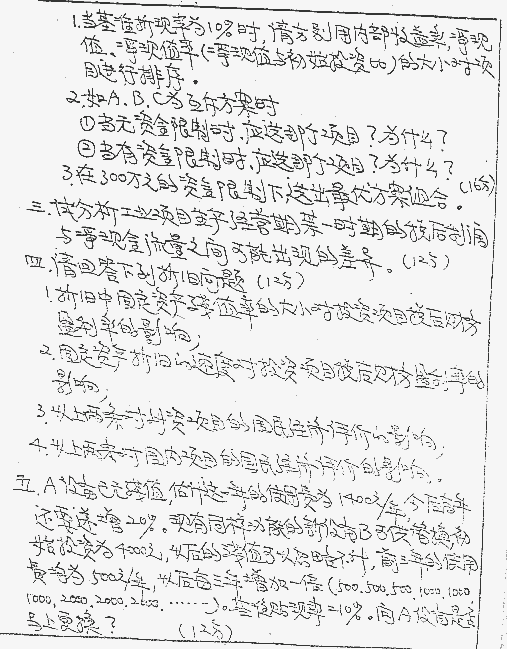 1.当基准折现率为10%时,请分别用内部收益率,净现
值、净现值率(=净现值与初始投资比)的大小对项
目进行排序。
2.如A.B.C为互斥方案时
①当无资金限制时,应选那个项目?为什么?
②当有资金限制时,应选那个项目?为什么?
3.在300万元的资金限制下,选出最优方案组合。(16分)
三.试分析工业项目生产经营期某一时期的税后利润
与净现金流量之间可能出现的差异。(12分)
四.请回答下列折旧问题(12分)
1.折旧中固定资产残值率的大小对投资项目税后财务
盈利率的影响;
2.固定资产折旧的速度对投资项目税后财务盈利率的
影响;
3.以上两条对外资项目的国民经济评价的影响;
4.以上两条对国内项目的国民经济评价的影响。
五.A设备已无残值,估计这一年的使用费为1400元/年,今后每年
还要递增20%。现有同样功能的新设备B可供替换,初
始投资为4000元,以后的残值可以忽略不计,前三年的使用
费均为500元/年,以后每三年增加一倍(500.500.500,1000.1000
1000,2000.2000.2000.……)。基准贴现率=10%。问A设备是否
马上更换? (12分)